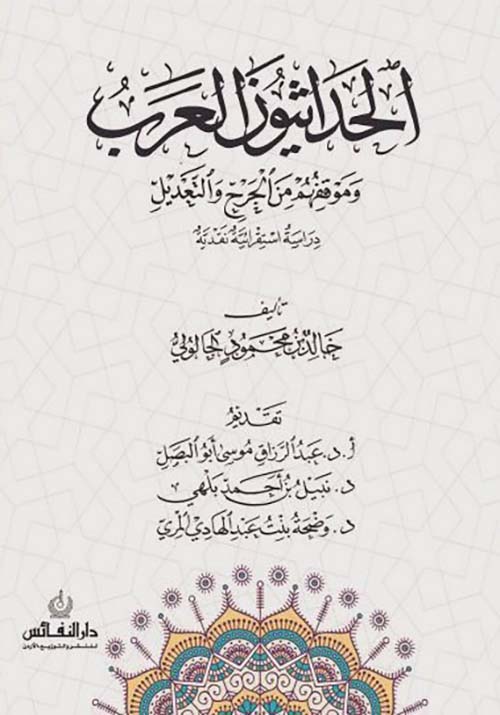 الحداثيون العرب
وَمَوْقِفُهُمْ مِنَ الْجَرْحِ وَالتَّعْدِيلِ
دِرَاسَةٌ اسْتِقْرَائِيَّةٌ نَقْدِيَّةٌ
تأليف
خَالِدُ بْنُ مَحْمُودٍ الْحَالُولِيُّ
تَقْدِيمُ
أ. د. عَبْدُ الرَّزَاقِ مُوسَى أَبُو الْبَصَلِ
د. نَبِيلُ بْنُ أَحْمَدَ بَلْهِي
د. وَضْحَةُ بِنْتُ عَبْدِ الْهَادِي الْمَرِي
دار النفائس
للنشر والتوزيع - الأردن